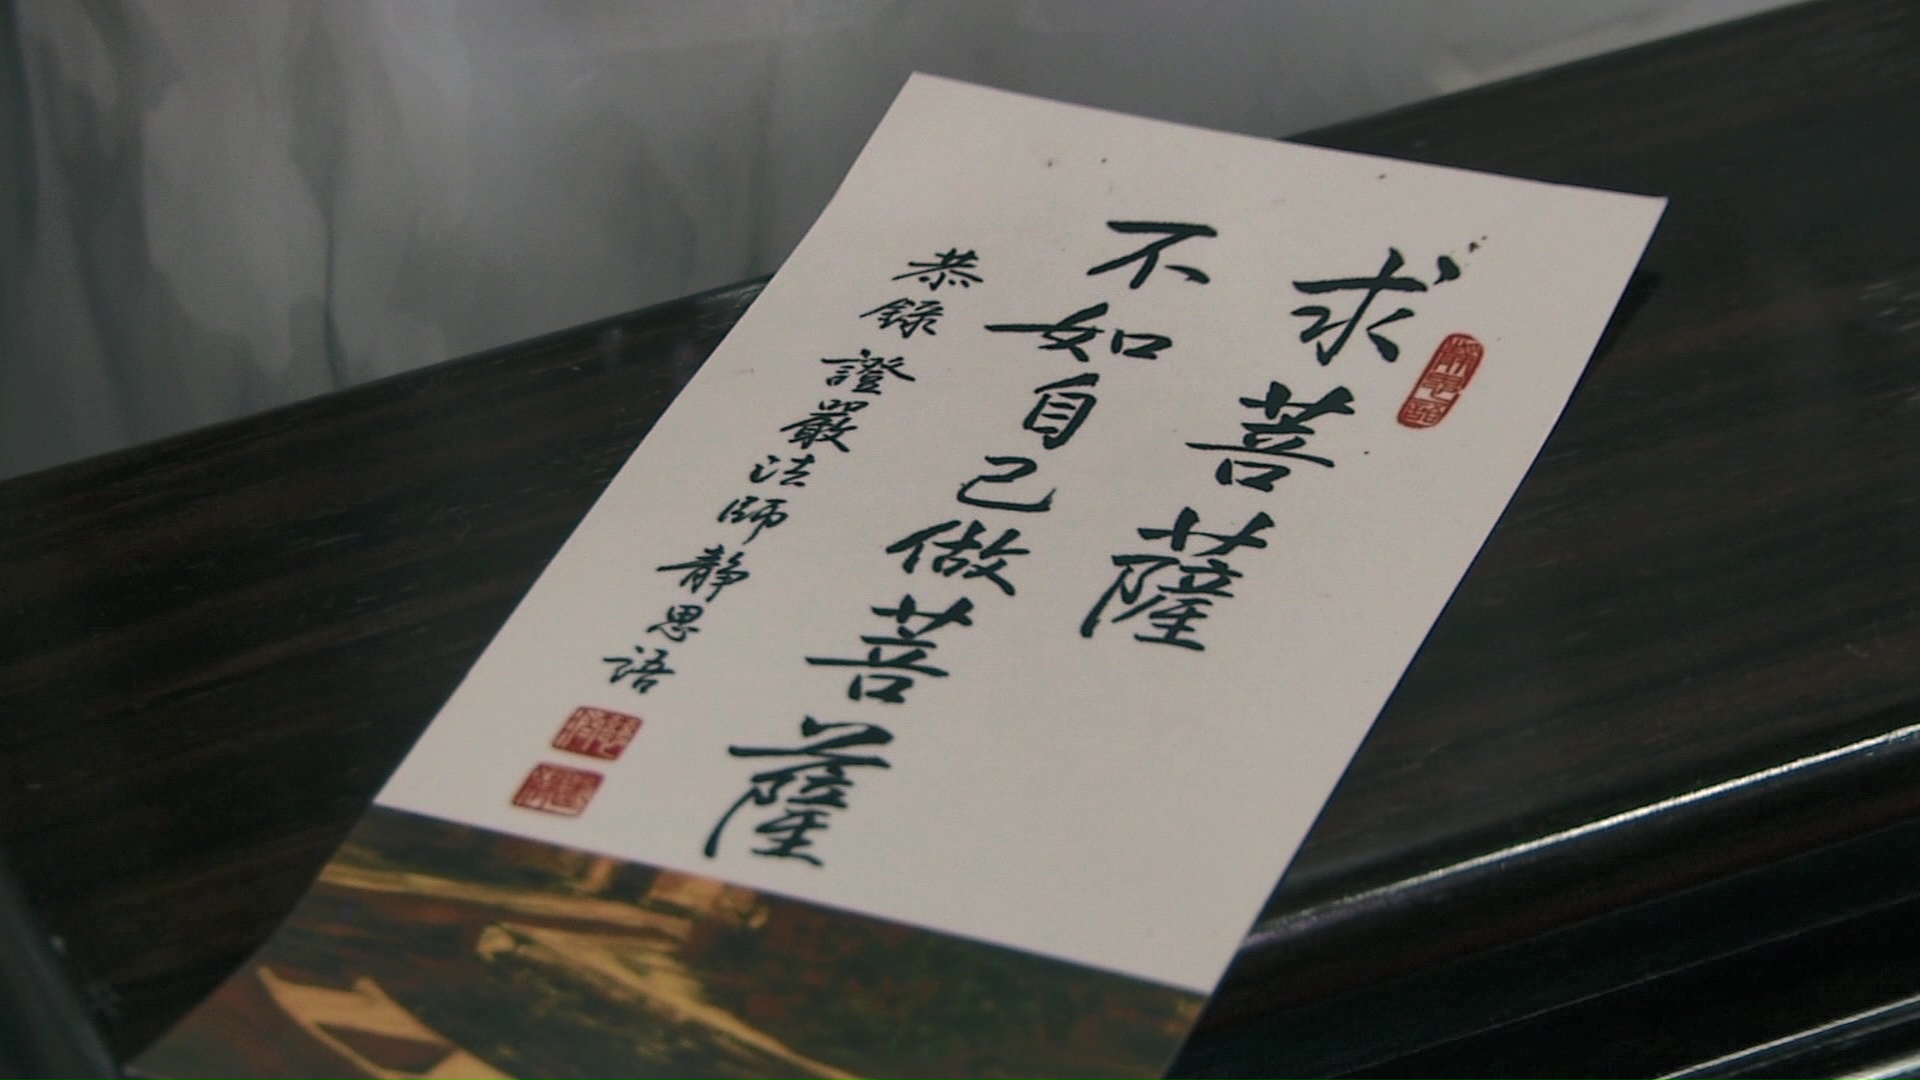 求菩薩
不如自己做菩薩
恭錄證嚴法師靜思語
靜思語